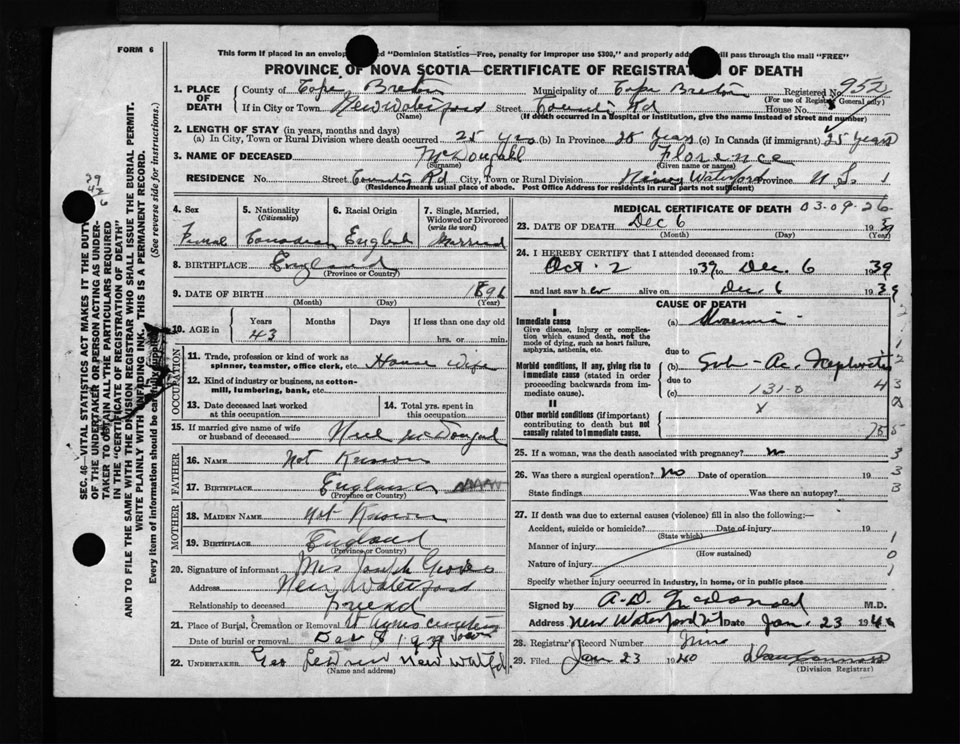 FORM 6
This form if placed in an envelop ed "Dominion Statistics—Free, penalty for improper use $300," and properly add will pass through the mail "FREE"
PROVINCE OF NOVA SCOTIA—CERTIFICATE OF REGISTRATION OF DEATH
1. PLACE OF DEATH County of Cape Breton Municipality of Cape Breton Registered No. 952
(For use of Registrar General only)
If in City or Town New Waterford Street County Rd House No.
(Name) (If death occurred in a hospital or institution, give the name instead of street and number)
2. LENGTH OF STAY (in years, months and days)
(a) In City, Town or Rural Division where death occurred 25 yrs (b) In Province 25 Years (c) In Canada (if immigrant) 25 Years
3. NAME OF DECEASED McDougall Florence
(Surname) (Given name or names)
RESIDENCE No. Street County Rd City, Town or Rural Division New Waterford Province N S 1
(Residence means usual place of abode. Post Office Address for residents in rural parts not sufficient)
4. Sex 5. Nationality (Citizenship) 6. Racial Origin 7. Single, Married, Widowed or Divorced (write the word)
Female Canadian English Married
8. BIRTHPLACE England
(Province or Country)
9. DATE OF BIRTH 1896
(Month) (Day) (Year)
10. AGE in Years Months Days If less than one day old
43 hrs. or min.
OCCUPATION
11. Trade, profession or kind of work as spinner, teamster, office clerk, etc. House Wife
12. Kind of industry or business, as cotton-mill, lumbering, bank, etc.
13. Date deceased last worked at this occupation
14. Total yrs. spent in this occupation
15. If married give name of wife or husband of deceased Neil McDougal
FATHER
16. NAME Not Known
17. BIRTHPLACE England
(Province or Country)
MOTHER
18. MAIDEN NAME Not Known
19. BIRTHPLACE England
(Province or Country)
20. Signature of informant Mrs Joseph
Address New Waterford
Relationship to deceased Friend
21. Place of Burial, Cremation or Removal St Agnes
Date of burial or removal Dec 8 1939
22. UNDERTAKER Geo
(Name and address)
MEDICAL CERTIFICATE OF DEATH 03-09-26
23. DATE OF DEATH Dec 6 1939
(Month) (Day) (Year)
24. I HEREBY CERTIFY that I attended deceased from:
Oct. 2 1939 to Dec. 6 1939
and last saw her alive on Dec. 6 1939
CAUSE OF DEATH
I
Immediate cause
Give disease, injury or complication which caused death, not the mode of dying, such as heart failure, asphyxia, asthenia, etc.
(a) Uraemia
due to
Morbid conditions, if any, giving rise to immediate cause (stated in order proceeding backwards from immediate cause).
(b) Sub-Ac. Nephritis
due to
(c) 131-0
II
Other morbid conditions (if important) contributing to death but not causally related to immediate cause.
X
25. If a woman, was the death associated with pregnancy? No
26. Was there a surgical operation? No Date of operation 19
State findings Was there an autopsy?
27. If death was due to external causes (violence) fill in also the following:—
Accident, suicide or homicide? Date of injury 19
(State which)
Manner of injury
(How sustained)
Nature of injury
Specify whether injury occurred in industry, in home, or in public place
Signed by A. D. McDonald M.D.
Address New Waterford Date Jan. 23 1940
28. Registrar's Record Number Nine
29. Filed Jan 23 1940
(Division Registrar)
SEC. 46—VITAL STATISTICS ACT MAKES IT THE DUTY OF THE UNDERTAKER OR PERSON ACTING AS UNDERTAKER TO OBTAIN ALL THE PARTICULARS REQUIRED IN THE "CERTIFICATE OF REGISTRATION OF DEATH" AND TO FILE THE SAME WITH THE DIVISION REGISTRAR WHO SHALL ISSUE THE BURIAL PERMIT.
WRITE PLAINLY WITH UNFADING INK. THIS IS A PERMANENT RECORD.
Every item of information should be carefully (See reverse side for instructions.)